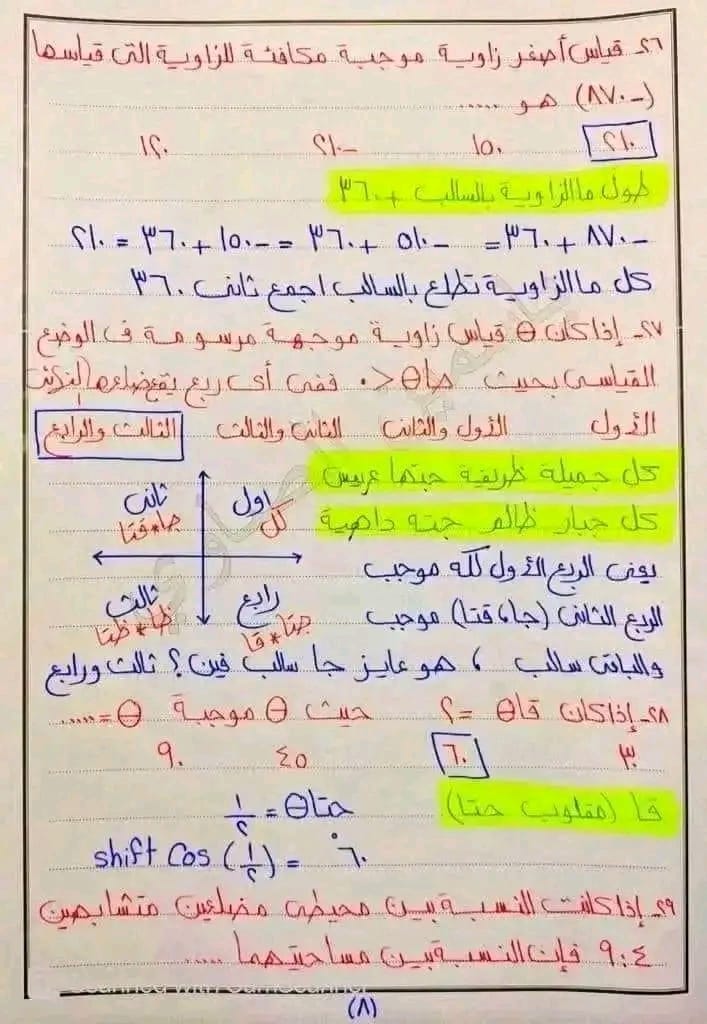 ٢٦ـ قياس أصغر زاوية موجبة مكافئة للزاوية التى قياسها
(-٨٧٠) هو .....
٢١٠ ١٥٠ -٢١٠ ١٢٠
طول ما الزاوية بالسالب + ٣٦٠
-٨٧٠ + ٣٦٠ = -٥١٠ + ٣٦٠ = -١٥٠ + ٣٦٠ = ٢١٠
كل ما الزاوية تطلع بالسالب اجمع تانى ٣٦٠
٢٧ـ إذا كان θ قياس زاوية موجهة مرسومة فى الوضع
القياسى بحيث حاθ < ٠ ففى أى ربع يقع ضلعها
الأول الأول والثانى الثانى والثالث الثالث والرابع
كل جميلة ظريفة جتها عريس
كل جبار ظالم جته داهية
اول
كل
ثانى
جا * قتا
ثالث
ظا * ظتا
رابع
جتا * قا
يعنى الربع الأول كله موجب
الربع الثانى (جا، قتا) موجب
والباقى سالب ، هو عايز جا سالب فين؟ ثالث ورابع
٢٨ـ إذا كان قاθ = ٢ حيث θ موجبة θ = .....
٣٠ ٦٠ ٤٥ ٩٠
قا (مقلوب حتا) حتاθ = ١/٢
shift Cos (١/٢) = ٦٠°
٢٩ـ إذا كانت النسبة بين محيطى مضلعين متشابهين
٩:٤ فإن النسبة بين مساحتيهما .....
(٨)